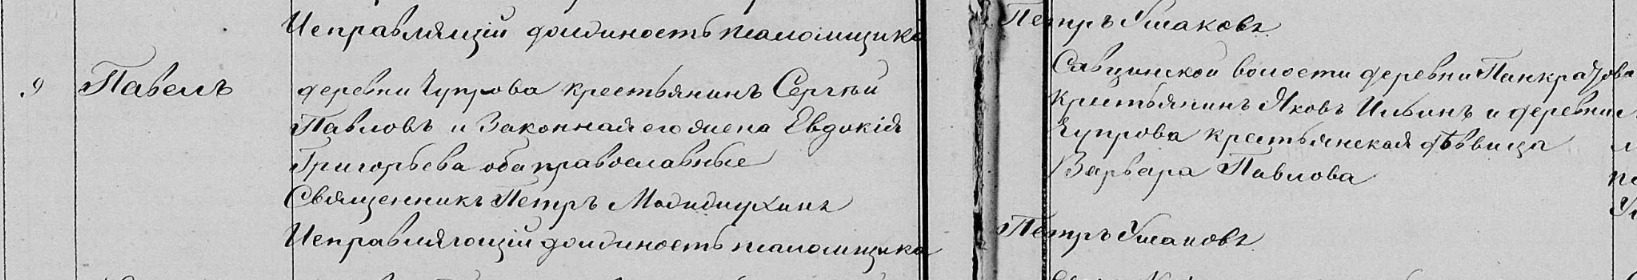 Исправляющій должность псаломщика
Петръ Ушаковъ
9
Павелъ
деревни Чупрова крестьянинъ Сергѣй
Павловъ и законная его жена Евдокія
Григорьева оба православные
Священникъ Петръ
Исправляющій должность псаломщика
Савцинской волости деревни Панкратова
крестьянинъ Яковъ Ильинъ и деревни
Чупрова крестьянская дѣвица
Варвара Павлова
Петръ Ушаковъ